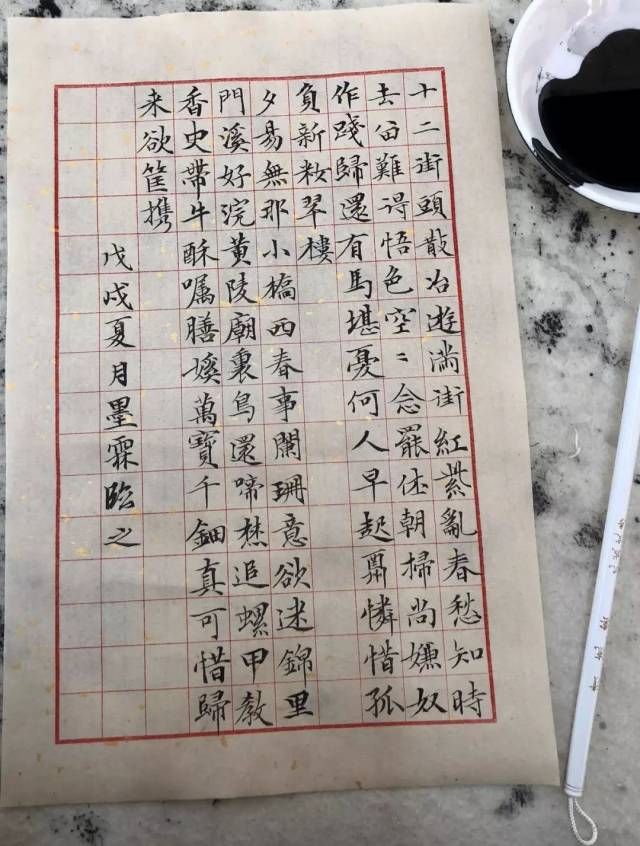 十二街頭散冶遊滿街紅紫亂春愁知時
去留難得悟色空〻念罷休朝掃尚嫌奴
作踐歸還有馬堪憂何人早起憐惜孤
負新妝翠樓
夕易無那小橋西春事闌珊意欲迷錦里
門溪好浣黃陵廟裏鳥還啼焚追螺甲教
香史帶牛酥囑膳萬寶千鈿真可惜歸
来欲筐攜
戊戌夏月墨霖臨之